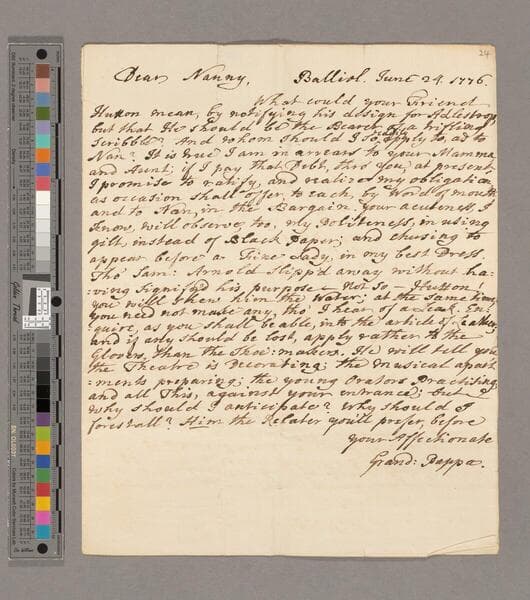 24
Dear Nanny, Balliol. June 24. 1776.
What could your Friend
Hutton mean, by notifying his design for Adlestrop,
but that He should be the Bearer of a trifling
Scribble? And whom should I so readily apply to, as to
Nan? It is true I am in arrears to your Mamma
and Aunt; if I pay that Debt, thro' You, at present,
I promise to ratify, and realize my obligation
as occasion shall offer to each, by Word of mouth
and to Nan, in the Bargain, your acuteness, I
know, will observe, too, my Politeness, in using
gilt, instead of Black Paper; and chusing to
appear before a Fine Lady, in my best Dress.
Tho' Sam: Arnold slipp'd away without ha-
=ving signify'd his purpose — Not so — Hutton!
you will shew him the Water; at the same time,
you need not make any, tho' I hear of a Leak. En-
quire, as you shall be able, into the article of Leather,
and if any should be lost, apply rather to the
Glovers, than the Shoe-makers. He will tell you
the Theatre is Decorating; the musical apart
=ments preparing; the young Orators Practising;
and all This, against your entrance; but
why should I anticipate? why should I
forestall? Him the Relater you'll prefer before
your Affectionate
Grand: Pappa.